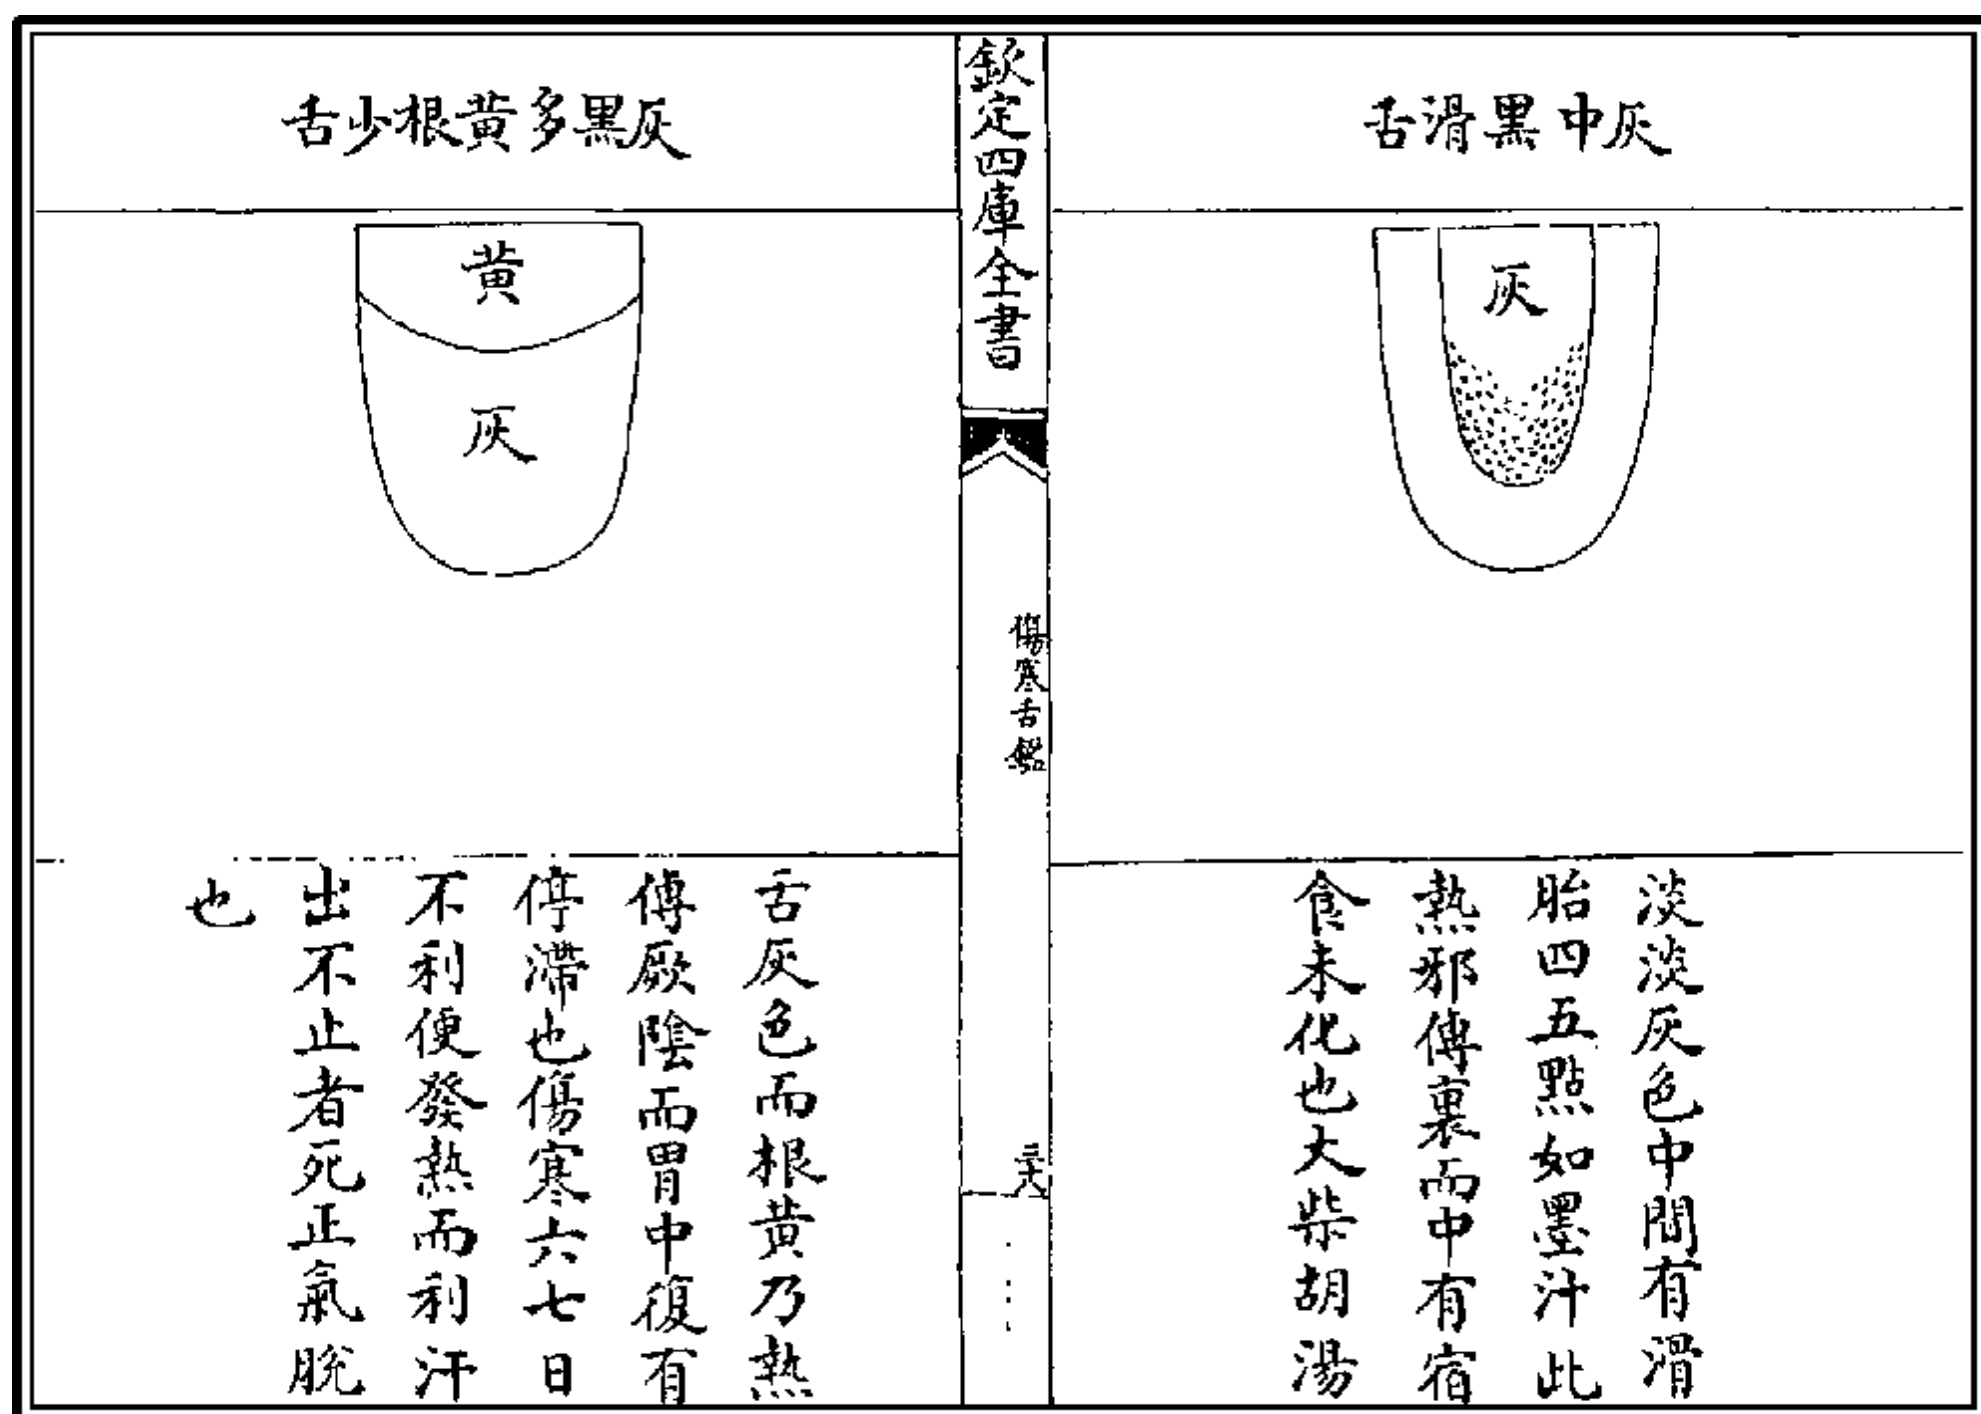 灰中黑滑舌
灰
淡淡灰色中間有滑
胎四五點如墨汁此
熱邪傳裏而中有宿
食未化也大柴胡湯
欽定四庫全書
傷寒舌鑑
二十八
灰黑多黄根少舌
黄
灰
舌灰色而根黄乃熱
傳厥陰而胃中復有
停滯也傷寒六七日
不利便發熱而利汗
出不止者死正氣脫
也